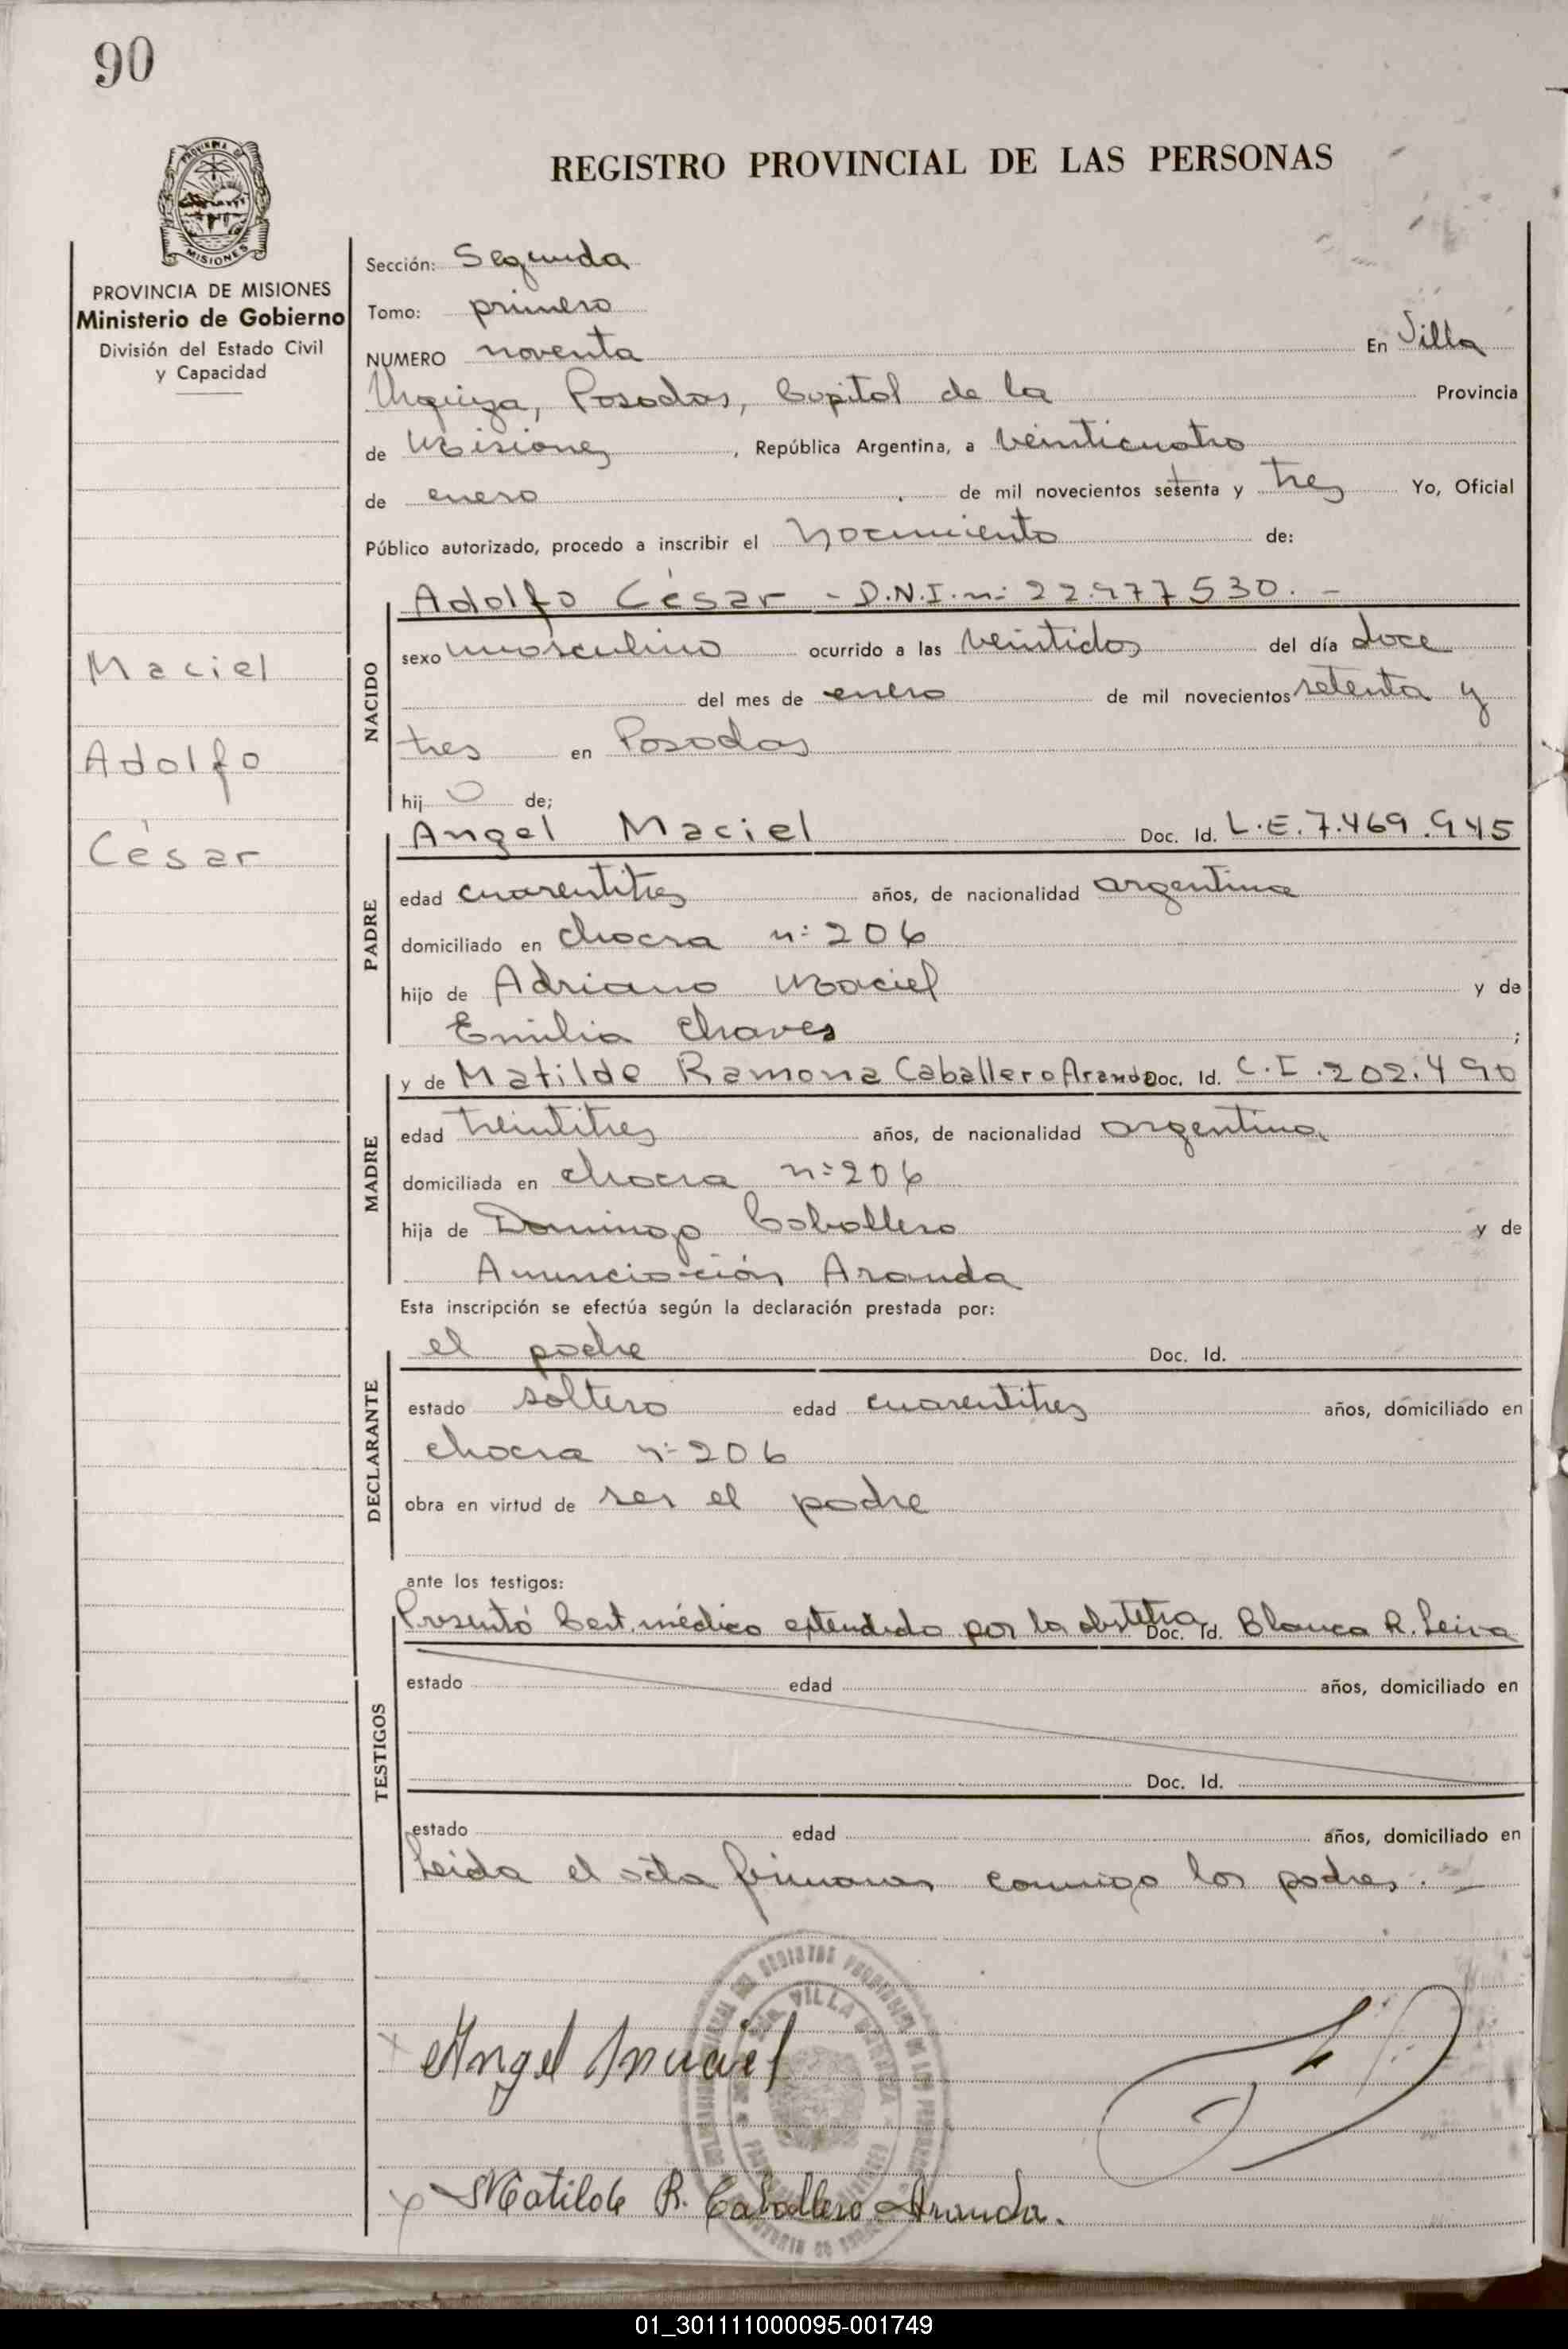 90
REGISTRO PROVINCIAL DE LAS PERSONAS
PROVINCIA DE MISIONES
Ministerio de Gobierno
División del Estado Civil
y Capacidad
Maciel
Adolfo
César
Sección: Segunda
Tomo: primero
NUMERO noventa En Villa
Urquiza, Posadas, Capital de la Provincia
de Misiones, República Argentina, a veinticuatro
de enero de mil novecientos setenta y tres Yo, Oficial
Público autorizado, procedo a inscribir el Nacimiento de:
NACIDO
Adolfo César - D.N.I. n: 22.977530. -
sexo masculino ocurrido a las veintidos del día doce
del mes de enero de mil novecientos setenta y
tres en Posadas
hij o de;
PADRE
Angel Maciel Doc. Id. L.E. 7.469.945
edad cuarentitres años, de nacionalidad argentina
domiciliado en chacra n: 206
hijo de Adriano Maciel y de
Emilia Chaves ;
MADRE
y de Matilde Ramona Caballero Aranda Doc. Id. C.I. 202.490
edad treintitres años, de nacionalidad argentina
domiciliada en chacra n: 206
hija de Domingo Caballero y de
Anunciación Aranda
Esta inscripción se efectúa según la declaración prestada por:
DECLARANTE
el padre Doc. Id.
estado soltero edad cuarentitres años, domiciliado en
chacra n: 206
obra en virtud de ser el padre
ante los testigos:
TESTIGOS
Presentó Cert. médico extendido por la obstetra Doc. Id. Blanca R. Leiva
estado edad años, domiciliado en
Doc. Id.
estado edad años, domiciliado en
Leida el acta firman conmigo los padres. -
Angel Maciel
Matilde R. Caballero Aranda.
01_301111000095-001749